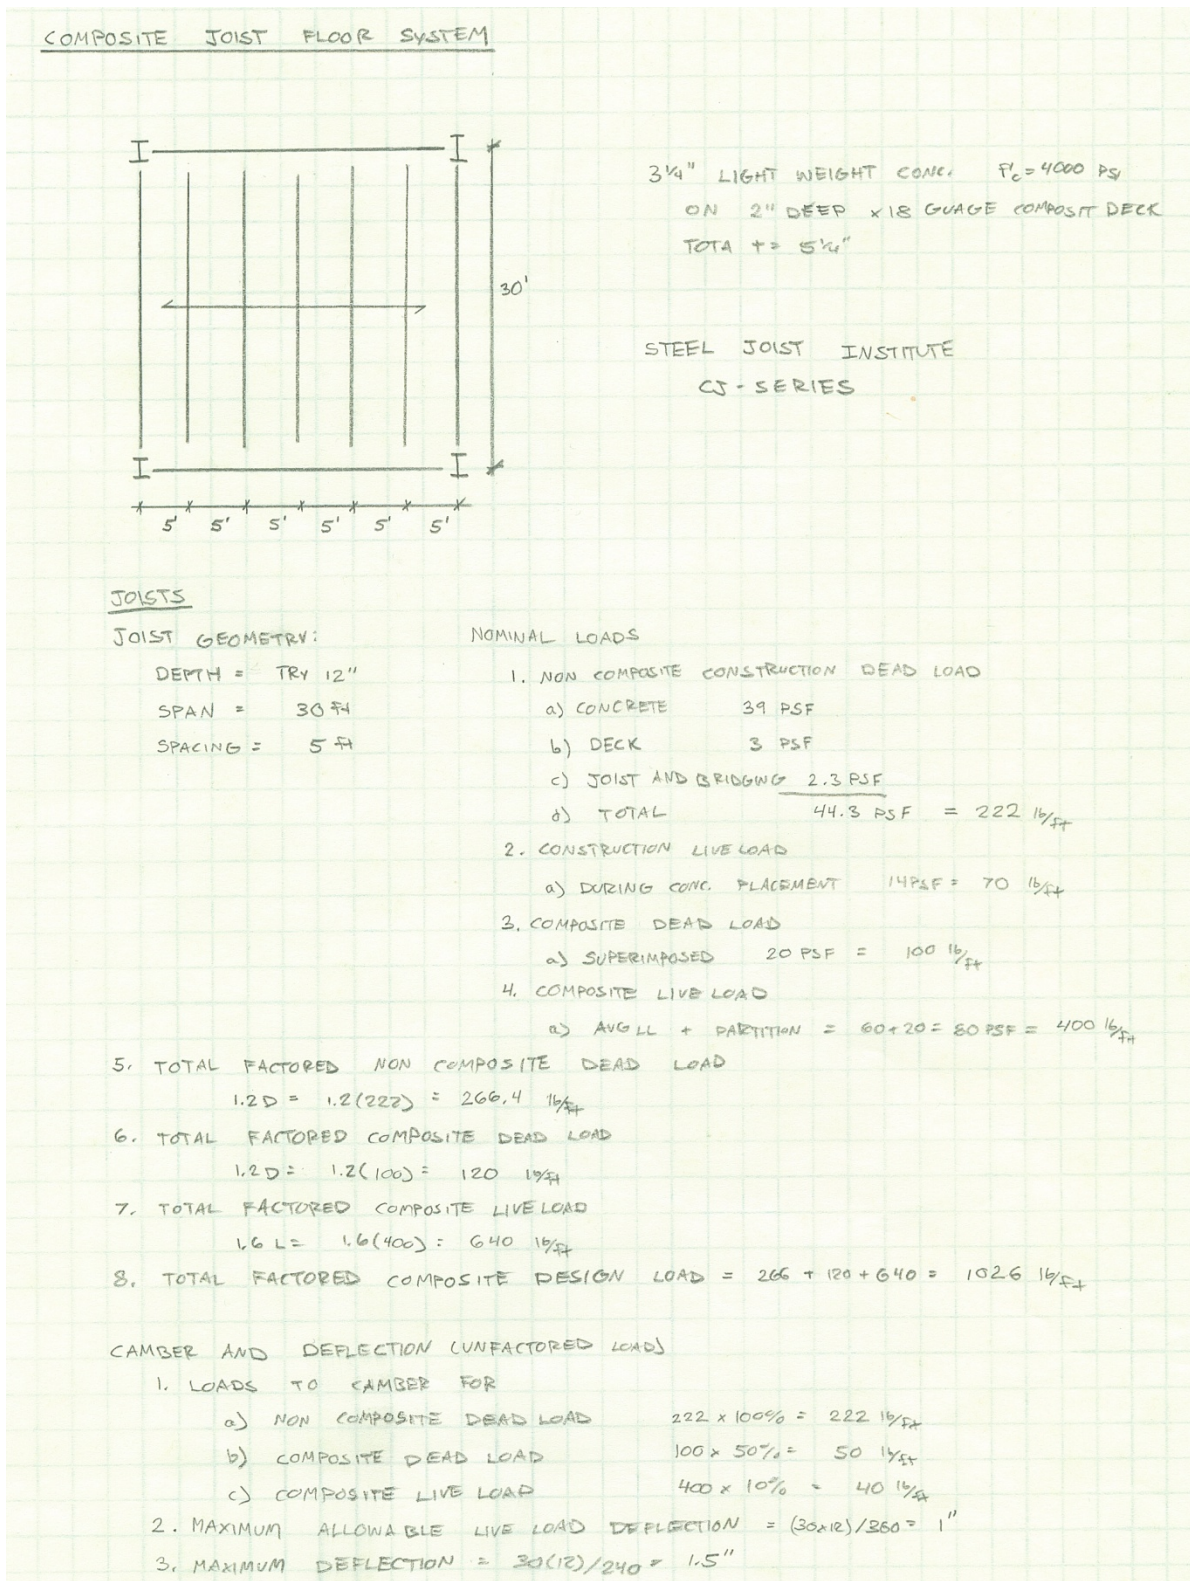 COMPOSITE JOIST FLOOR SYSTEM
3 1/4" LIGHT WEIGHT CONC. f'c = 4000 PSI
ON 2" DEEP x 18 GUAGE COMPOSIT DECK
TOTA t = 5 1/4"
30'
STEEL JOIST INSTITUTE
CJ - SERIES
5' 5' 5' 5' 5' 5'
JOISTS
JOIST GEOMETRY:
DEPTH = TRY 12"
SPAN = 30 ft
SPACING = 5 ft
NOMINAL LOADS
1. NON COMPOSITE CONSTRUCTION DEAD LOAD
a) CONCRETE 39 PSF
b) DECK 3 PSF
c) JOIST AND BRIDGING 2.3 PSF
d) TOTAL 44.3 PSF = 222 lb/ft
2. CONSTRUCTION LIVE LOAD
a) DURING CONC. PLACEMENT 14PSF = 70 lb/ft
3. COMPOSITE DEAD LOAD
a) SUPERIMPOSED 20 PSF = 100 lb/ft
4. COMPOSITE LIVE LOAD
a) AVG LL + PARTITION = 60+20 = 80 PSF = 400 lb/ft
5. TOTAL FACTORED NON COMPOSITE DEAD LOAD
1.2D = 1.2(222) = 266.4 lb/ft
6. TOTAL FACTORED COMPOSITE DEAD LOAD
1.2D = 1.2(100) = 120 lb/ft
7. TOTAL FACTORED COMPOSITE LIVE LOAD
1.6 L = 1.6(400) = 640 lb/ft
8. TOTAL FACTORED COMPOSITE DESIGN LOAD = 266 + 120 + 640 = 1026 lb/ft
CAMBER AND DEFLECTION (UNFACTORED LOADS)
1. LOADS TO CAMBER FOR
a) NON COMPOSITE DEAD LOAD 222 x 100% = 222 lb/ft
b) COMPOSITE DEAD LOAD 100 x 50% = 50 lb/ft
c) COMPOSITE LIVE LOAD 400 x 10% = 40 lb/ft
2. MAXIMUM ALLOWABLE LIVE LOAD DEFLECTION = (30x12)/360 = 1"
3. MAXIMUM DEFLECTION = 30(12)/240 = 1.5"